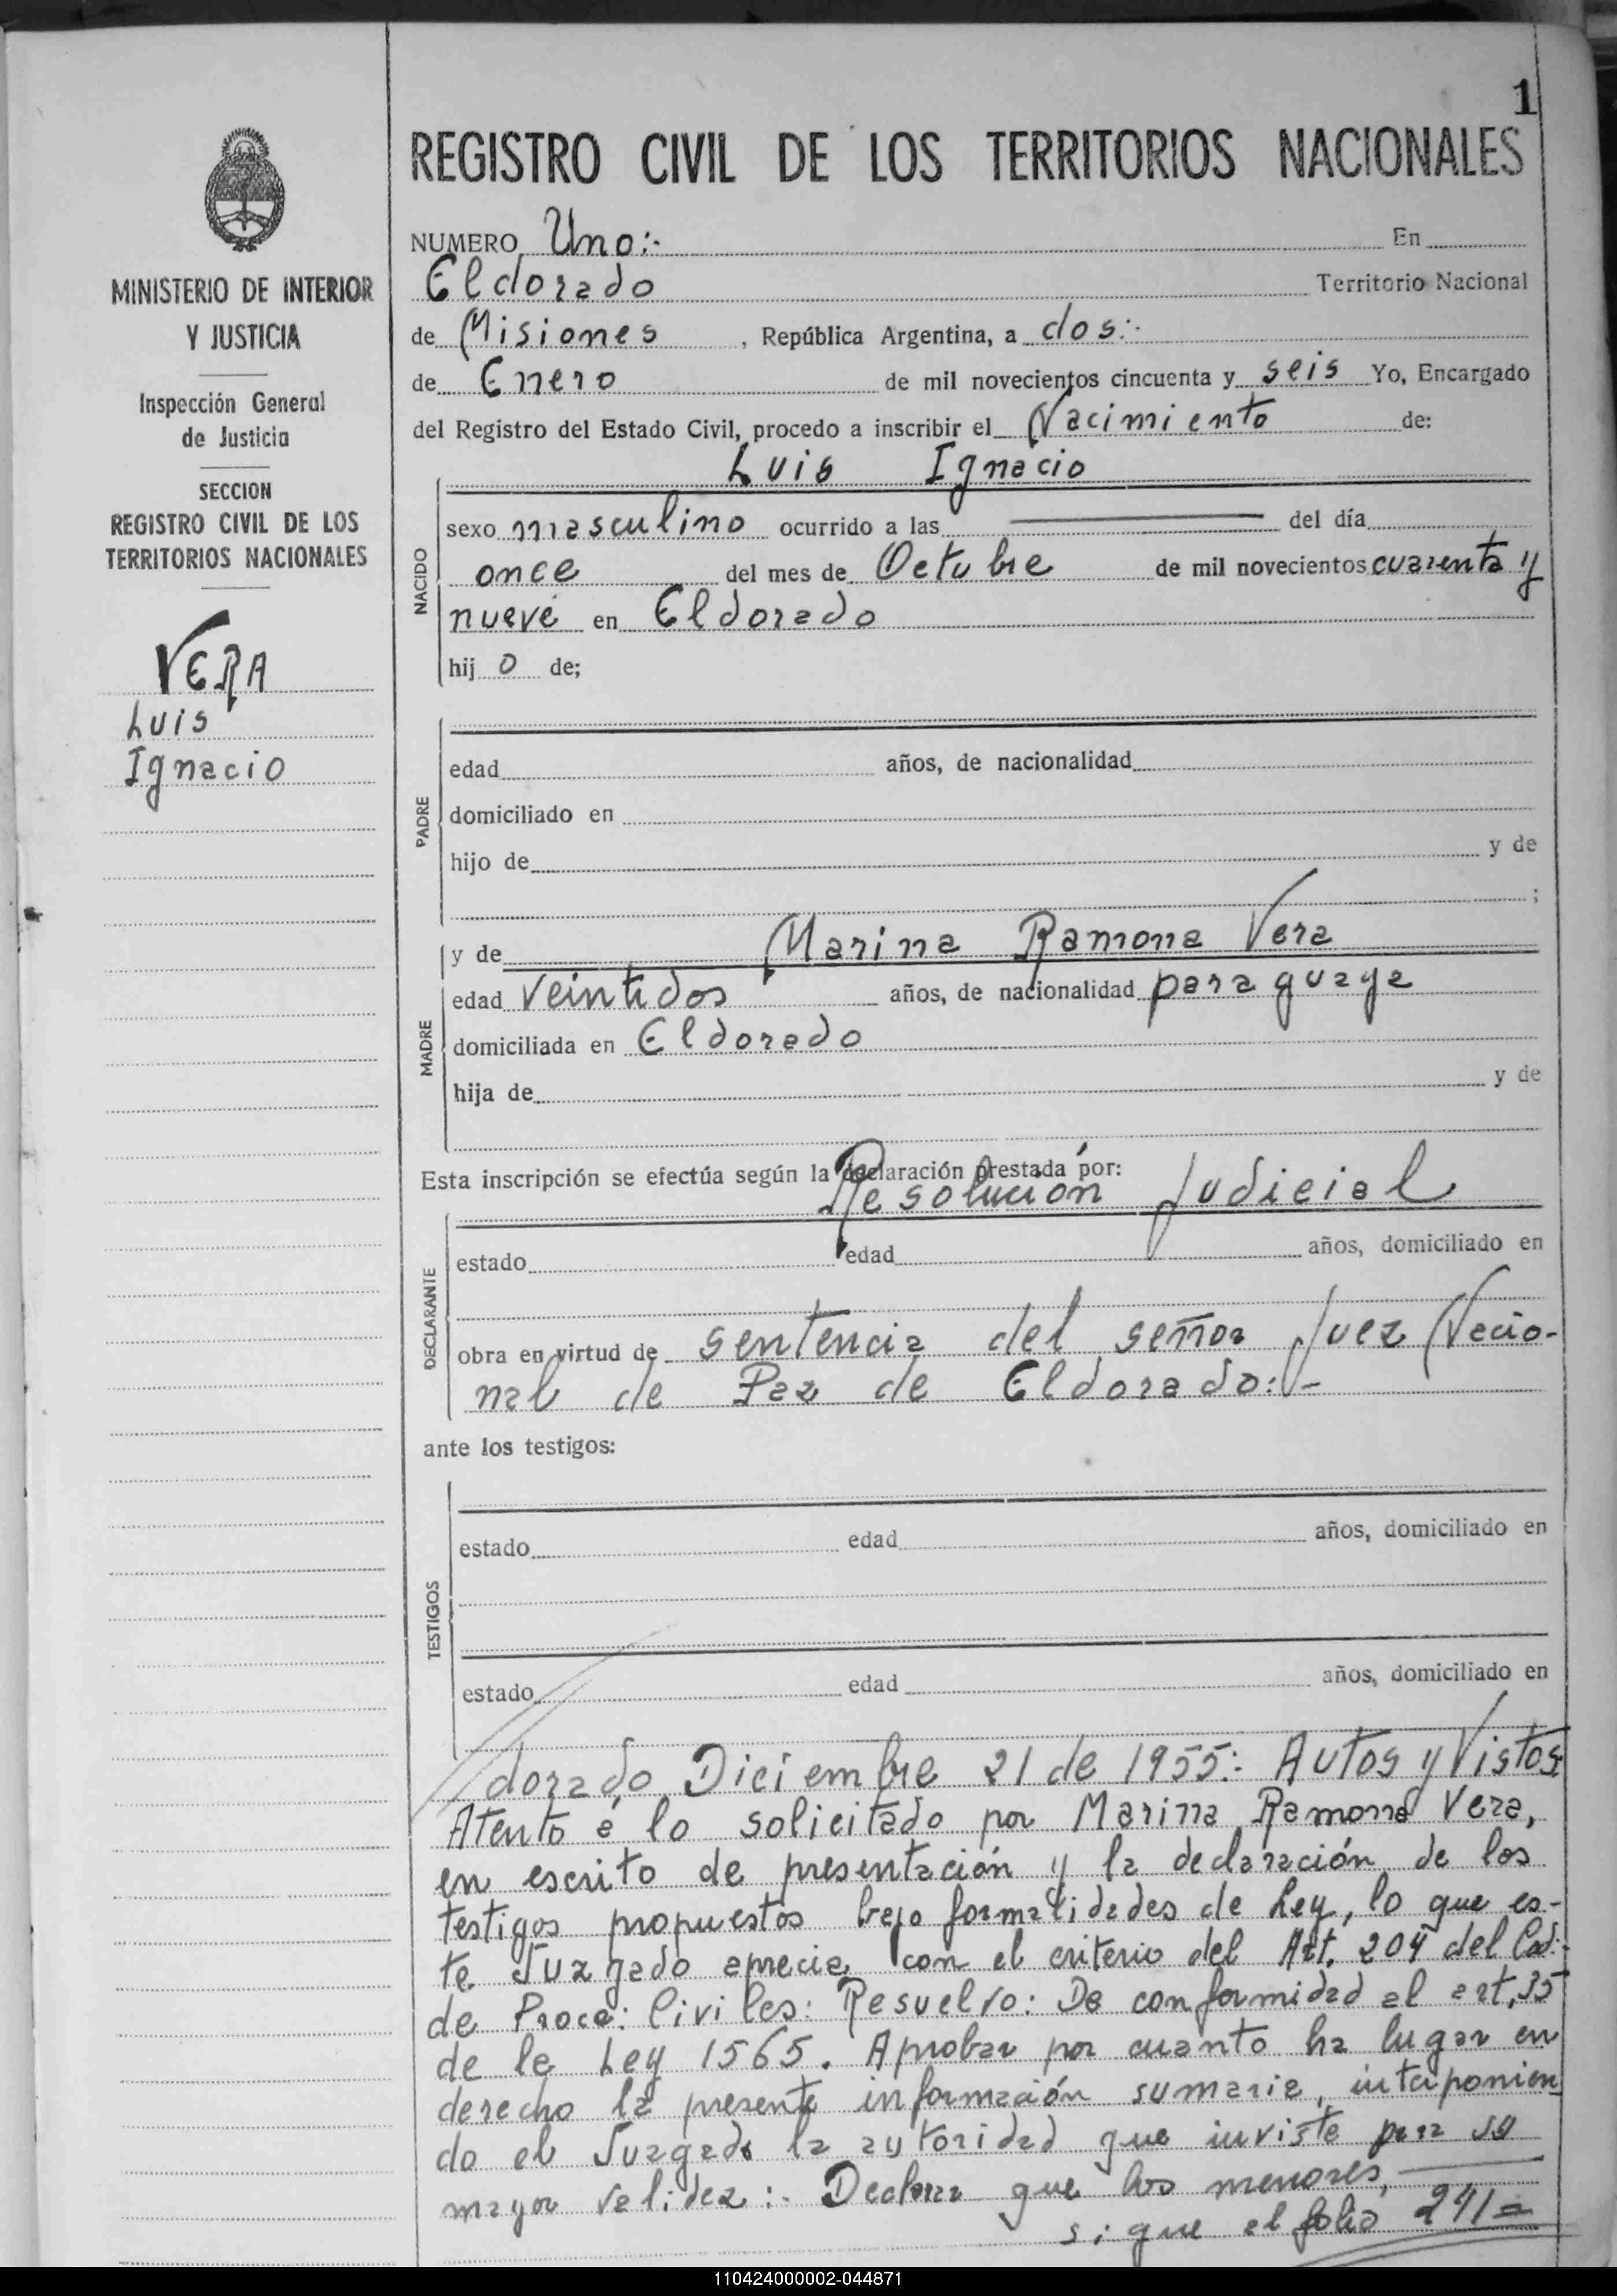 1
REGISTRO CIVIL DE LOS TERRITORIOS NACIONALES
MINISTERIO DE INTERIOR
Y JUSTICIA
Inspección General
de Justicia
SECCION
REGISTRO CIVIL DE LOS
TERRITORIOS NACIONALES
VERA
Luis
Ignacio
NUMERO Uno:- En
Eldorado Territorio Nacional
de Misiones, República Argentina, a dos:-
de Enero de mil novecientos cincuenta y seis Yo, Encargado
del Registro del Estado Civil, procedo a inscribir el Nacimiento de:
Luis Ignacio
NACIDO
sexo masculino ocurrido a las del día
once del mes de Octubre de mil novecientos cuarenta y
nueve en Eldorado
hij o de;
PADRE
edad años, de nacionalidad
domiciliado en
hijo de y de
;
MADRE
y de Marina Ramona Vera
edad veintidos años, de nacionalidad paraguaya
domiciliada en Eldorado
hija de y de
Esta inscripción se efectúa según la declaración prestada por:
Resolución Judicial
DECLARANTE
estado edad años, domiciliado en
obra en virtud de sentencia del señor Juez Nacio-
nal de Paz de Eldorado:-
ante los testigos:
TESTIGOS
estado edad años, domiciliado en
estado edad años, domiciliado en
dorado Diciembre 21 de 1955:- Autos y Vistos:
Atento a lo solicitado por Marina Ramona Vera,
en escrito de presentación y la declaración de los
testigos propuestos bajo formalidades de Ley, lo que es-
te Juzgado aprecia con el criterio del Art. 204 del Cod:-
de Proce: Civiles: Resuelvo: De conformidad al art, 35
de la Ley 1565. Aprobar por cuanto ha lugar en
derecho la presente información sumaria, interponien
do el Juzgado la autoridad que inviste para su
mayor validez:- Declarar que los menores,
sigue al folio 241=
110424000002-044871